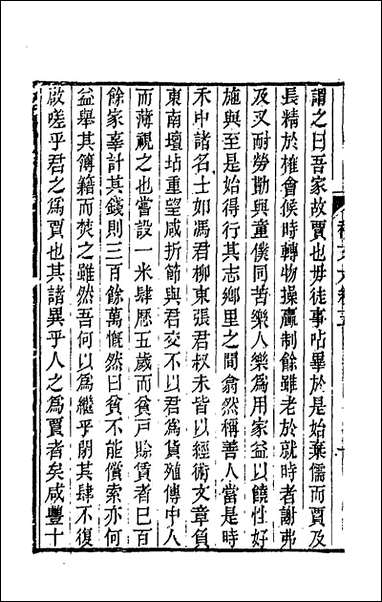 謂之曰吾家故賈也毋徒事呫畢於是始棄儒而賈及
長精於榷會候時轉物操贏制餘雖老於就時者謝弗
及又耐勞勩與童僕同苦樂人樂為用家益以饒性好
施與至是始得行其志鄉里之間翕然稱善人當是時
禾中諸名士如馮君柳東張君叔未皆以經術文章負
東南壇坫重望咸折節與君交不以君為貨殖傳中人
而薄視之也嘗設一米肆歷五歲而貧戶賒貰者已百
餘家辜計其錢則三百餘萬慨然曰貧不能償索亦何
益舉其簿籍而焚之雖然吾何以為繼乎閉其肆不復
啟嗟乎君之為賈也其諸異乎人之為賈者矣咸豐十